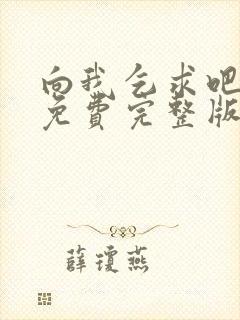 向我乞求吧
免费完整版
薛琼燕